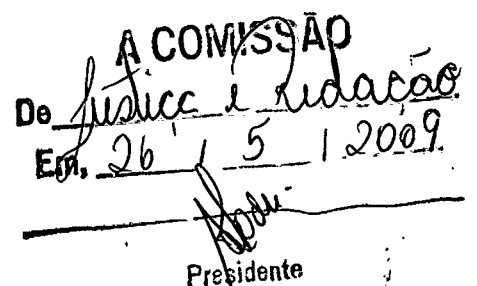 A COMISSÃO
De Justiça e redação
Em, 26 / 5 / 2009
Presidente